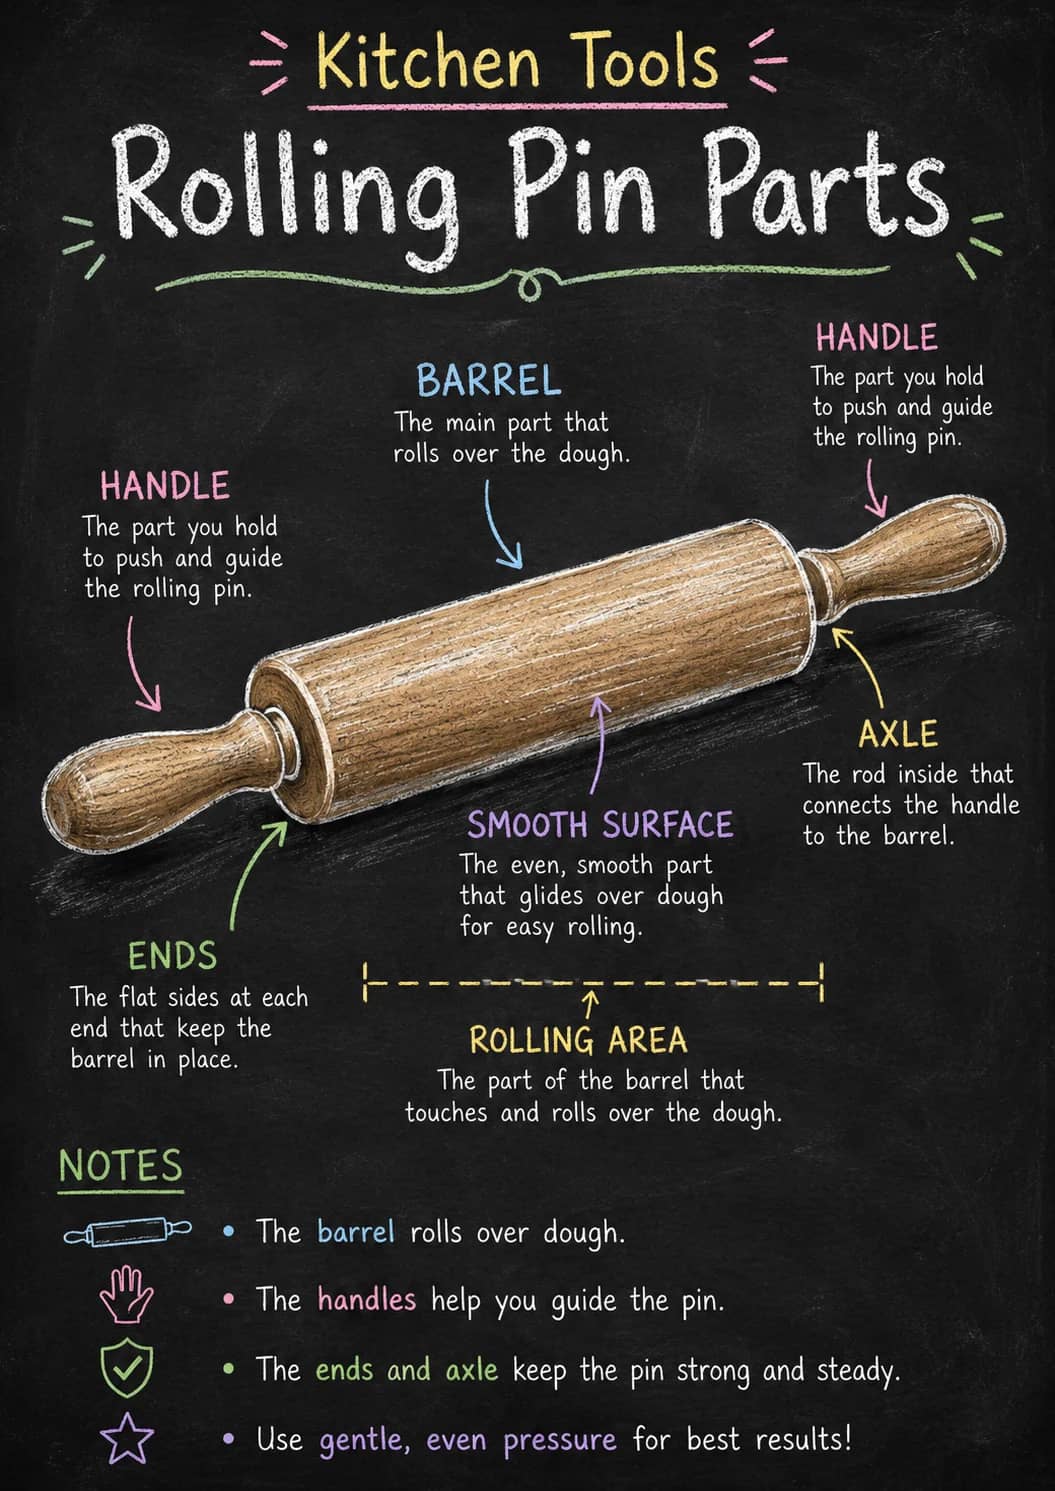 Kitchen Tools
Rolling Pin Parts
HANDLE
The part you hold
to push and guide
the rolling pin.
BARREL
The main part that
rolls over the dough.
HANDLE
The part you hold
to push and guide
the rolling pin.
AXLE
The rod inside that
connects the handle
to the barrel.
SMOOTH SURFACE
The even, smooth part
that glides over dough
for easy rolling.
ENDS
The flat sides at each
end that keep the
barrel in place.
ROLLING AREA
The part of the barrel that
touches and rolls over the dough.
NOTES
• The barrel rolls over dough.
• The handles help you guide the pin.
• The ends and axle keep the pin strong and steady.
• Use gentle, even pressure for best results!